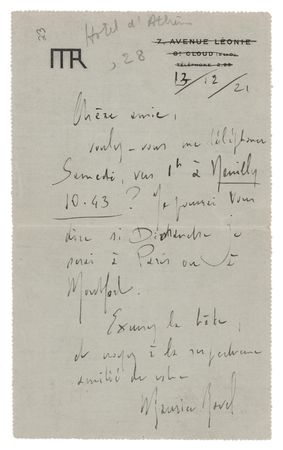 23
Hôtel d'Athèn
, 28
MR
7, AVENUE LÉONIE
St CLOUD
TÉLÉPHONE 2.33
13/12/21
Chère amie,
voulez-vous me téléphoner
Samedi, vers 1h à Neuilly
10.43 ? Je pourrai vous
dire si Dimanche je
serai à Paris ou à
Montfort.
Excusez la hâte,
et croyez à la respectueuse
amitié de votre
Maurice Ravel